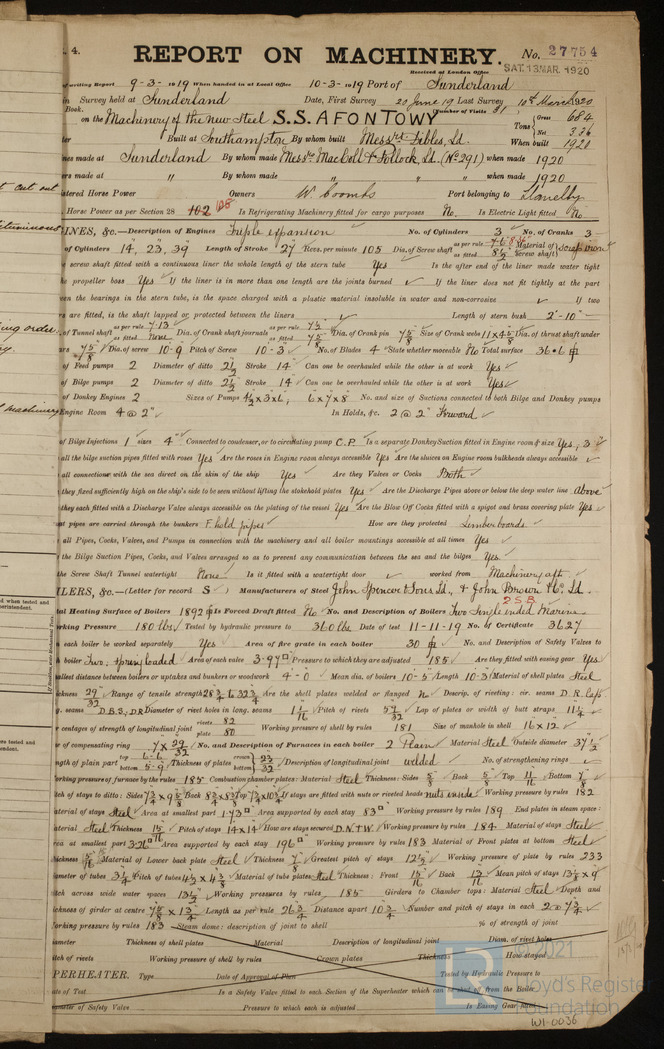 REPORT ON MACHINERY. No. 27754
Received at London Office SAT. 13 MAR. 1920
of writing Report 9-3-1919 When handed in at Local Office 10-3-1919 Port of Sunderland
Survey held at Sunderland Date, First Survey 20 June 19 Last Survey 10th March 1920
Book. (Number of Visits 31
on the Machinery of the new Steel S.S. AFONTOWY Tons Gross 684 Net 336
Built at Southampton By whom built Messrs Fibbles, Ld. When built 1920
made at Sunderland By whom made Messrs MacColl & Pollock, Ld. (No 291) when made 1920
made at " By whom made " " when made 1920
Horse Power Owners W Coombs Port belonging to Llanelly
Horse Power as per Section 28 102 108 Is Refrigerating Machinery fitted for cargo purposes No. Is Electric Light fitted No
INES, &c.—Description of Engines Triple expansion No. of Cylinders 3 No. of Cranks 3
of Cylinders 14", 23", 39" Length of Stroke 27" Revs. per minute 105 Dia. of Screw shaft as per rule as fitted 8½ Material of screw shaft
screw shaft fitted with a continuous liner the whole length of the stern tube Yes Is the after end of the liner made water tight
the propeller boss Yes If the liner is in more than one length are the joints burned If the liner does not fit tightly at the part
the bearings in the stern tube, is the space charged with a plastic material insoluble in water and non-corrosive If two
are fitted, is the shaft lapped or protected between the liners Length of stern bush 2'-10"
of Tunnel shaft as per rule 7.13 as fitted none Dia. of Crank shaft journals as per rule 7½ as fitted 7⅝ Dia. of Crank pin 7⅝ Size of Crank webs 11 x 4⅝ Dia. of thrust shaft under
7⅝ Dia. of screw 10-9 Pitch of Screw 10-3" No. of Blades 4 State whether moveable No Total surface 36.6
of Feed pumps 2 Diameter of ditto 2½ Stroke 14" Can one be overhauled while the other is at work Yes
of Bilge pumps 2 Diameter of ditto 2½ Stroke 14" Can one be overhauled while the other is at work Yes
of Donkey Engines 2 Sizes of Pumps 4½ x 3 x 6, 6 x 7 x 8 No. and size of Suctions connected to both Bilge and Donkey pumps
Engine Room 4 @ 2" In Holds, &c. 2 @ 2" Forward
of Bilge Injections 1 sizes 4" Connected to condenser, or to circulating pump C.P. Is a separate Donkey Suction fitted in Engine room & size Yes, 3"
all the bilge suction pipes fitted with roses Yes Are the roses in Engine room always accessible Yes Are the sluices on Engine room bulkheads always accessible
all connections with the sea direct on the skin of the ship Yes Are they Valves or Cocks Both
they fixed sufficiently high on the ship's side to be seen without lifting the stokehold plates Yes Are the Discharge Pipes above or below the deep water line Above
they each fitted with a Discharge Valve always accessible on the plating of the vessel Yes Are the Blow Off Cocks fitted with a spigot and brass covering plate Yes
pipes are carried through the bunkers F. hold pipes How are they protected Limber boards
all Pipes, Cocks, Valves, and Pumps in connection with the machinery and all boiler mountings accessible at all times Yes
the Bilge Suction Pipes, Cocks, and Valves arranged so as to prevent any communication between the sea and the bilges Yes
the Screw Shaft Tunnel watertight None Is it fitted with a watertight door worked from Machinery aft
ILERS, &c.—(Letter for record S) Manufacturers of Steel John Spencer & Sons Ld., & John Brown & Co. Ld.
2 S.B.
Total Heating Surface of Boilers 1892 Is Forced Draft fitted No No. and Description of Boilers Two Single ended Marine
Working Pressure 180 lbs Tested by hydraulic pressure to 360 lbs Date of test 11-11-19 No. of Certificate 3627
each boiler be worked separately Yes Area of fire grate in each boiler 30 No. and Description of Safety Valves to
boiler Two, Spring loaded Area of each valve 3.97 Pressure to which they are adjusted 185 Are they fitted with easing gear Yes
smallest distance between boilers or uptakes and bunkers or woodwork 4'-0" Mean dia. of boilers 10-5 Length 10-3 Material of shell plates Steel
thickness 29/32 Range of tensile strength 28¾ to 32¾ Are the shell plates welded or flanged No Descrip. of riveting: cir. seams D.R. Lap
seams D.B.S., D.R. Diameter of rivet holes in long. seams 1 1/16 Pitch of rivets Lap of plates or width of butt straps 11¼
percentages of strength of longitudinal joint rivets 82 plate 80 Working pressure of shell by rules 181 Size of manhole in shell 16" x 12"
of compensating ring 7 x 29/32 No. and Description of Furnaces in each boiler 2 Plain Material Steel Outside diameter 37½
length of plain part top 6-6 bottom 5-9 Thickness of plates crown bottom 23/32 Description of longitudinal joint welded No. of strengthening rings
Working pressure of furnace by the rules 185 Combustion chamber plates: Material Steel Thickness: Sides ⅝ Back ⅝ Top 11/16 Bottom ⅞
Pitch of stays to ditto: Sides Back Top If stays are fitted with nuts or riveted heads nuts inside Working pressure by rules 182
Material of stays Steel Area at smallest part 1.73 Area supported by each stay 83 Working pressure by rules 189 End plates in steam space:
Material Steel Thickness 15/16 Pitch of stays 14 x 14 How are stays secured D.N.&W. Working pressure by rules 184 Material of stays Steel
Area at smallest part 3.26 Area supported by each stay 196 Working pressure by rules 183 Material of Front plates at bottom Steel
Thickness Material of Lower back plate Steel Thickness ⅞ Greatest pitch of stays 12½ Working pressure of plate by rules 233
Diameter of tubes 3¼ Pitch of tubes 4½ x 4⅜ Material of tube plates Steel Thickness: Front 15/16 Back Mean pitch of stays
Pitch across wide water spaces 13½ Working pressures by rules 185 Girders to Chamber tops: Material Steel Depth and
thickness of girder at centre 7⅝ x 1¾ Length as per rule 26¾ Distance apart 10¾ Number and pitch of stays in each 2 @ 7¾
Working pressure by rules 183 Steam dome: description of joint to shell % of strength of joint
Diameter Thickness of shell plates Material Description of longitudinal joint Diam. of rivet holes
Pitch of rivets Working pressure of shell by rules Crown plates Thickness How stayed
PERHEATER. Type Date of Approval of Plan Tested by Hydraulic Pressure to
Date of Test Is a Safety Valve fitted to each Section of the Superheater which can be shut off from the Boiler
Diameter of Safety Valve Pressure to which each is adjusted Is Easing Gear
© 2021
Lloyd's Register
Foundation
W1-0036